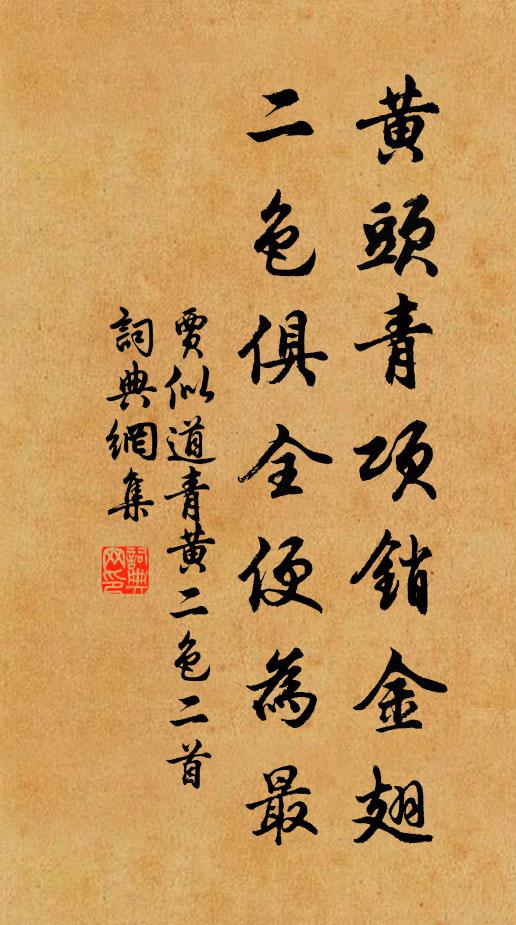 黃頭青項銷金翅
二色俱全便為最
賈似道青黃二色二首
詞典網集
詞典網印